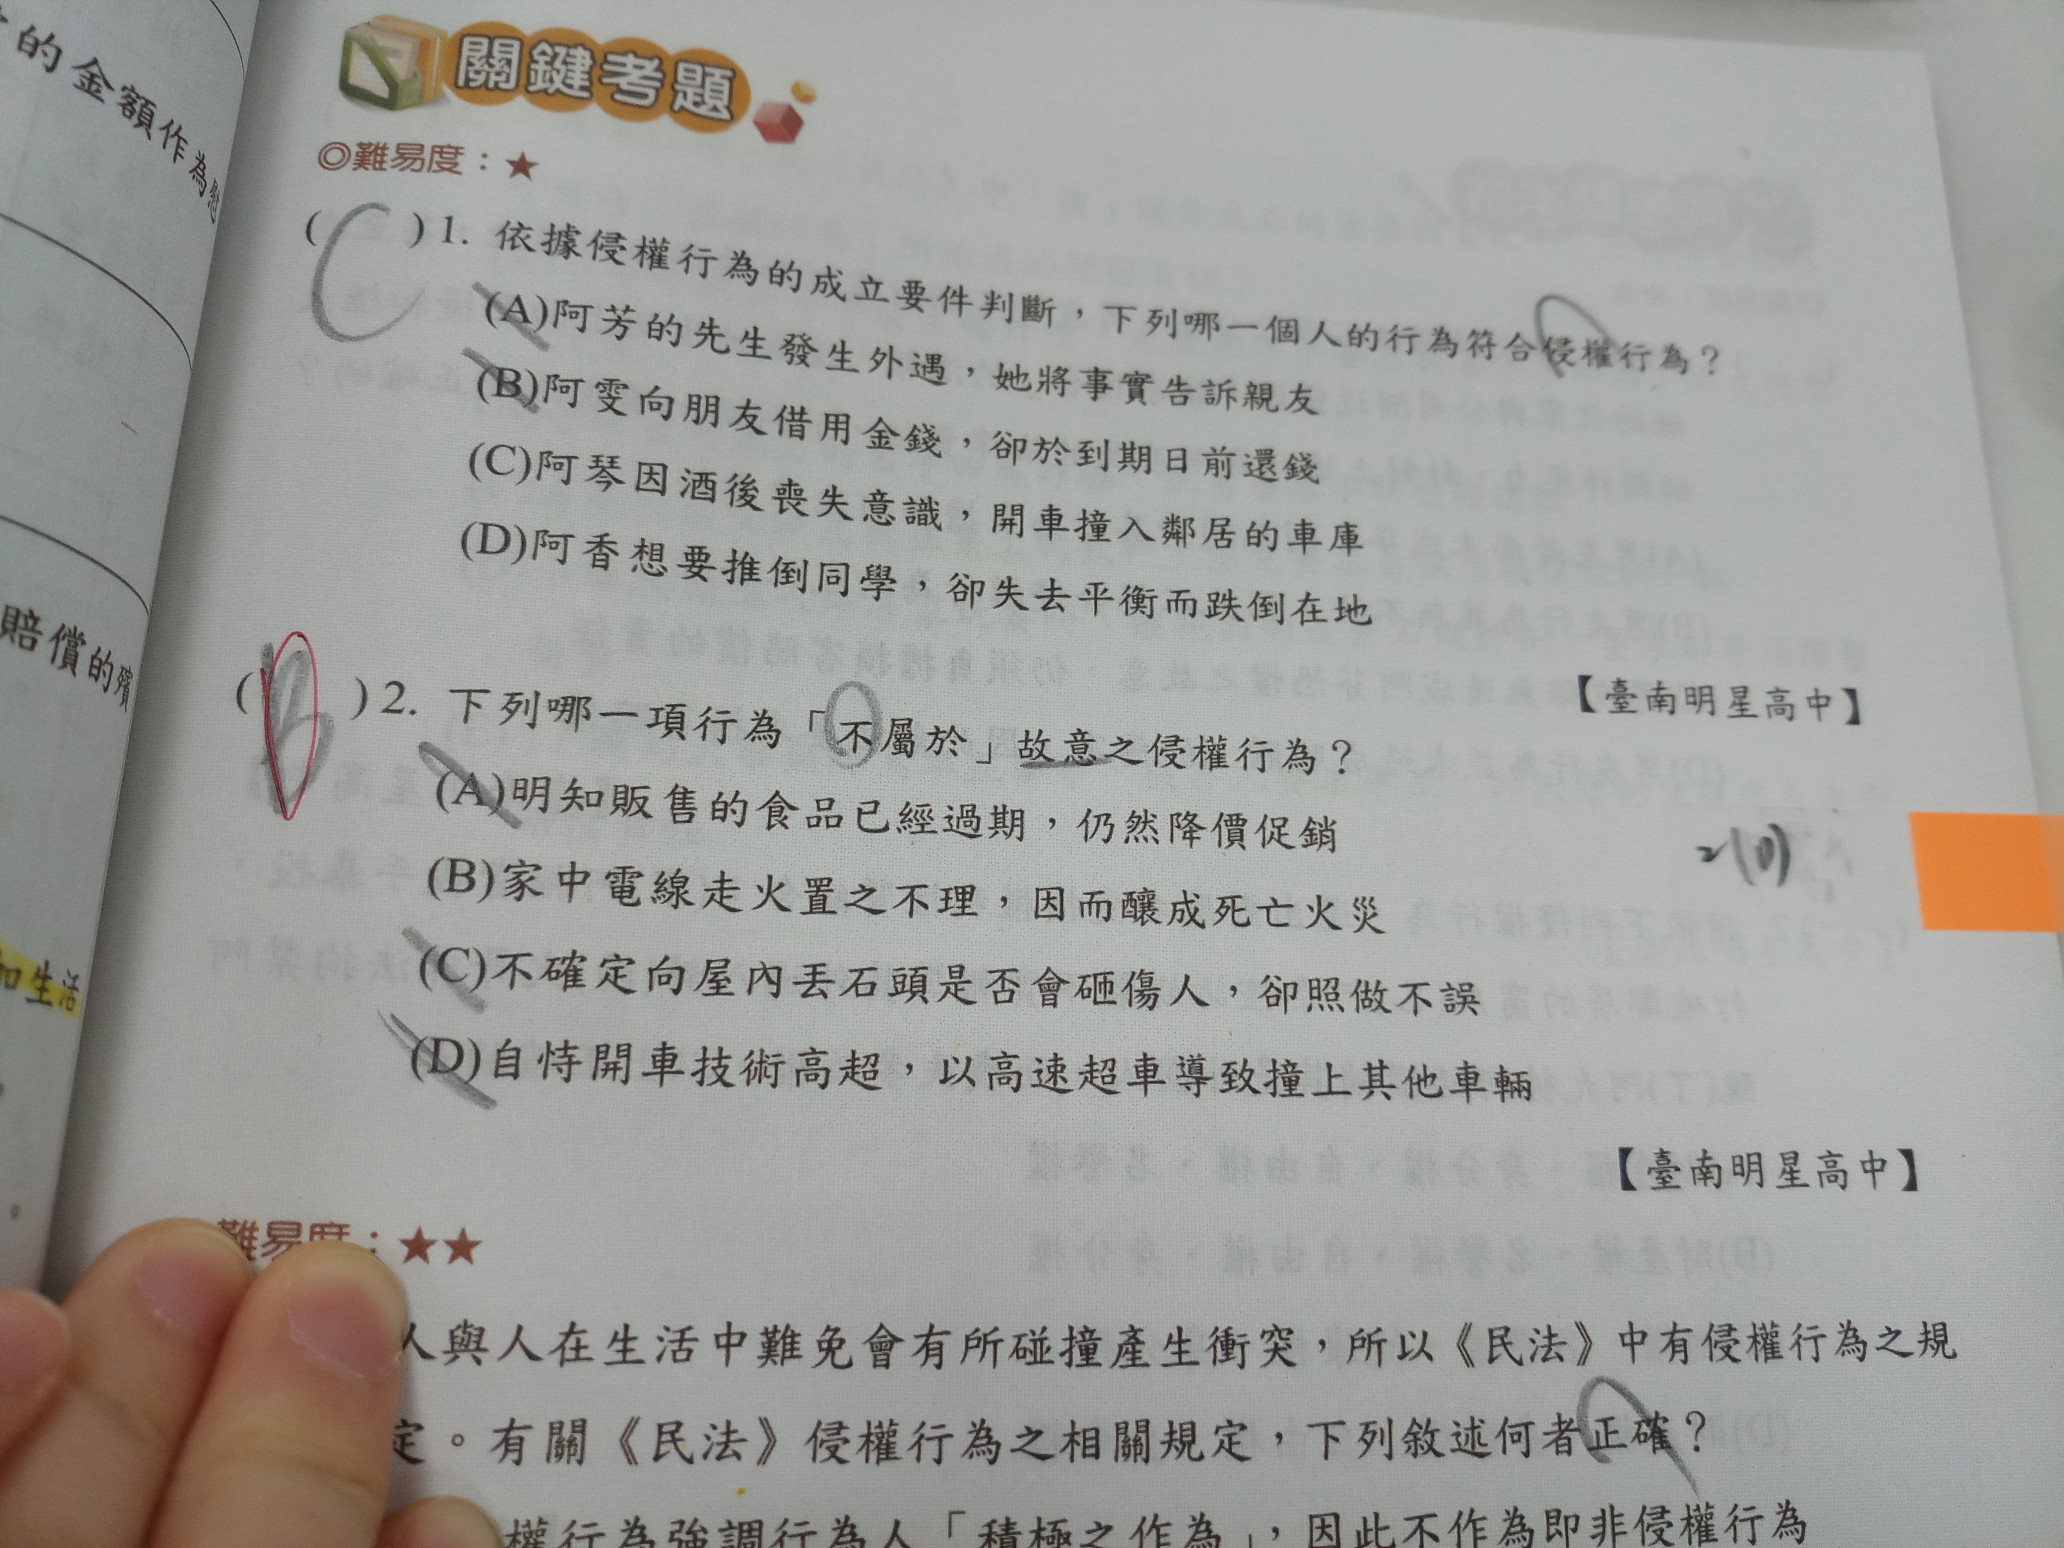 的金額作為慰
賠償的
加生活
關鍵考題
◎難易度：★
( C )1. 依據侵權行為的成立要件判斷，下列哪一個人的行為符合侵權行為？
(A)阿芳的先生發生外遇，她將事實告訴親友
(B)阿雯向朋友借用金錢，卻於到期日前還錢
(C)阿琴因酒後喪失意識，開車撞入鄰居的車庫
(D)阿香想要推倒同學，卻失去平衡而跌倒在地
【臺南明星高中】
( B )2. 下列哪一項行為「不屬於」故意之侵權行為？
(A)明知販售的食品已經過期，仍然降價促銷
(B)家中電線走火置之不理，因而釀成死亡火災
(C)不確定向屋內丟石頭是否會砸傷人，卻照做不誤
(D)自恃開車技術高超，以高速超車導致撞上其他車輛
【臺南明星高中】
難易度：★★
人與人在生活中難免會有所碰撞產生衝突，所以《民法》中有侵權行為之規
定。有關《民法》侵權行為之相關規定，下列敘述何者正確？
權行為強調行為人「積極之作為」，因此不作為即非侵權行為